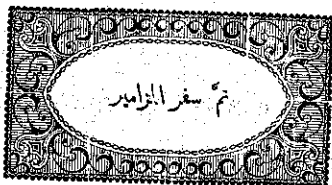 تمّ سفر المزامير